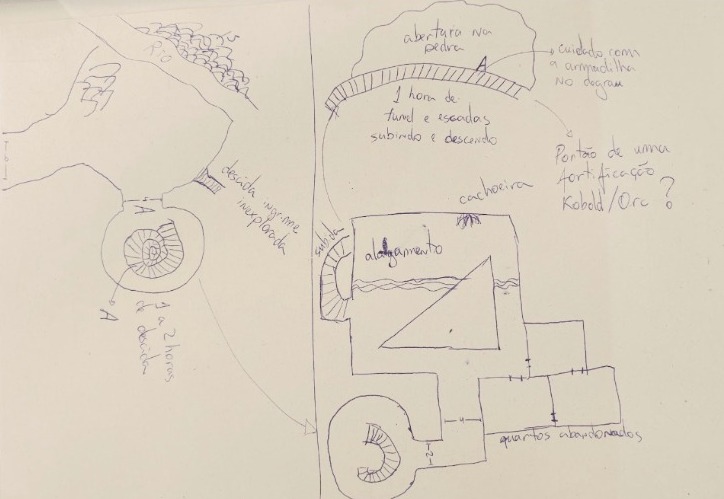 Rio
descida íngreme
inexplorada
A
A
1 a 2 horas
de descida
abertura na
pedra
A
cuidado com
a armadilha
no degrau
1 hora de
tunel e escadas
subindo e descendo
Portão de uma
fortificação
Kobold/Orc ?
cachoeira
subida
alagamento
4
2
quartos abandonados